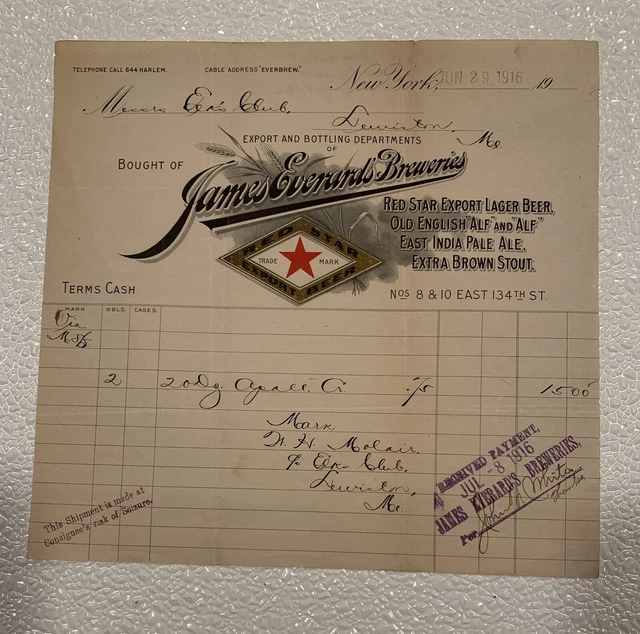 TELEPHONE CALL 644 HARLEM. CABLE ADDRESS "EVERBREW."
New York, JUN 29 1916 19
Messrs Elks Club,
Lewiston, Me.
EXPORT AND BOTTLING DEPARTMENTS
OF
BOUGHT OF James Everard's Breweries
RED STAR EXPORT LAGER BEER,
OLD ENGLISH "ALF" AND "ALF"
EAST INDIA PALE ALE.
EXTRA BROWN STOUT.
RED STAR
TRADE MARK
EXPORT BEER
TERMS CASH
NOS 8 & 10 EAST 134TH ST.
MARK BBLS. CASES
Via
2 20 Dz .75 1500
Mark
c/o Elks Club,
Lewiston,
Me.
RECEIVED PAYMENT,
JUL -8 1916
JAMES EVERARD'S BREWERIES,
Per
This Shipment is made at
Consignee's risk of Seizure.